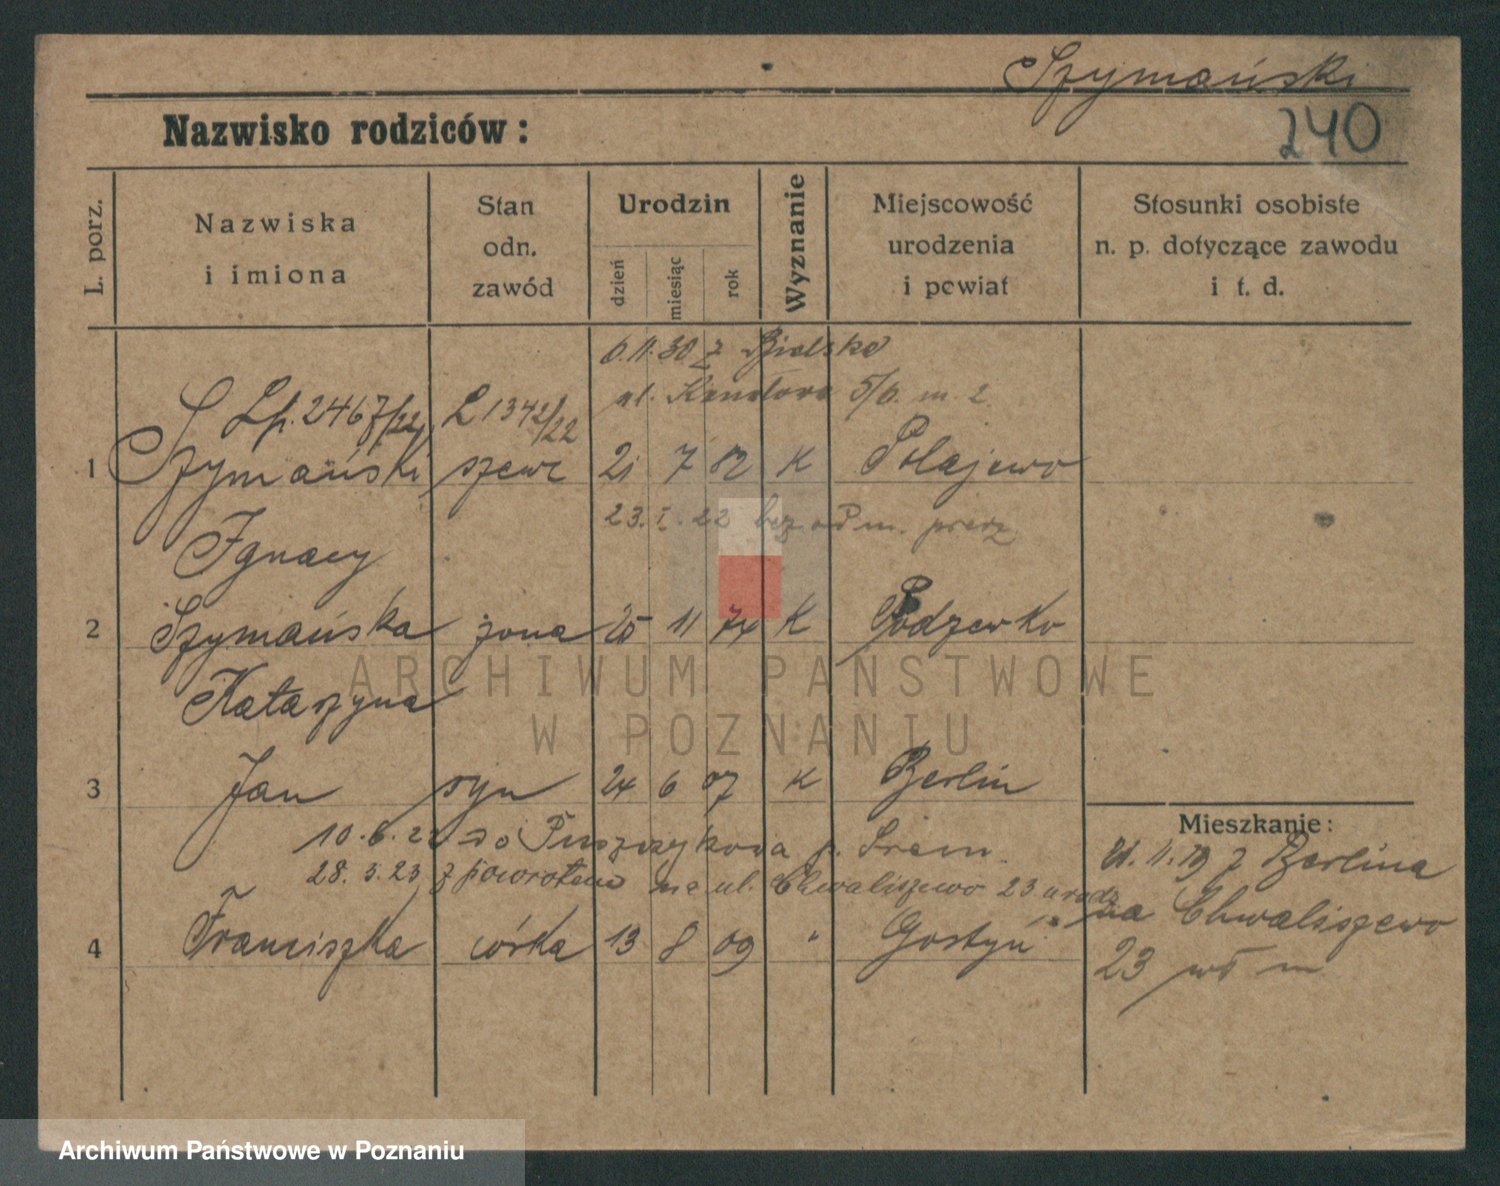 Szymański
240
Nazwisko rodziców:
L. porz.
Nazwiska
i imiona
Stan
odn.
zawód
Urodzin
dzień
miesiąc
rok
Wyznanie
Miejscowość
urodzenia
i powiat
Stosunki osobiste
n. p. dotyczące zawodu
i t. d.
6.11.30 z Bielska
ul. 5/6. m. 2
Lp. 2467/22, L 1342/22
1 Szymański szewc 21 7 82 K Połajewo
23. I. 22 bez odm. przez
Ignacy
2 Szymańska żona 25 11 74 K Podzewko
Katarzyna
3 Jan syn 24 6 07 K Berlin
10.6.22 do Puszczykowa p. Śrem.
28.3.23 z powrotem na ul. Chwaliszewo 23
Mieszkanie:
11.19 z Berlina
na Chwaliszewo
23
4 Franciszka córka 13 8 09 " Gostyń
ARCHIWUM PAŃSTWOWE
W POZNANIU
Archiwum Państwowe w Poznaniu